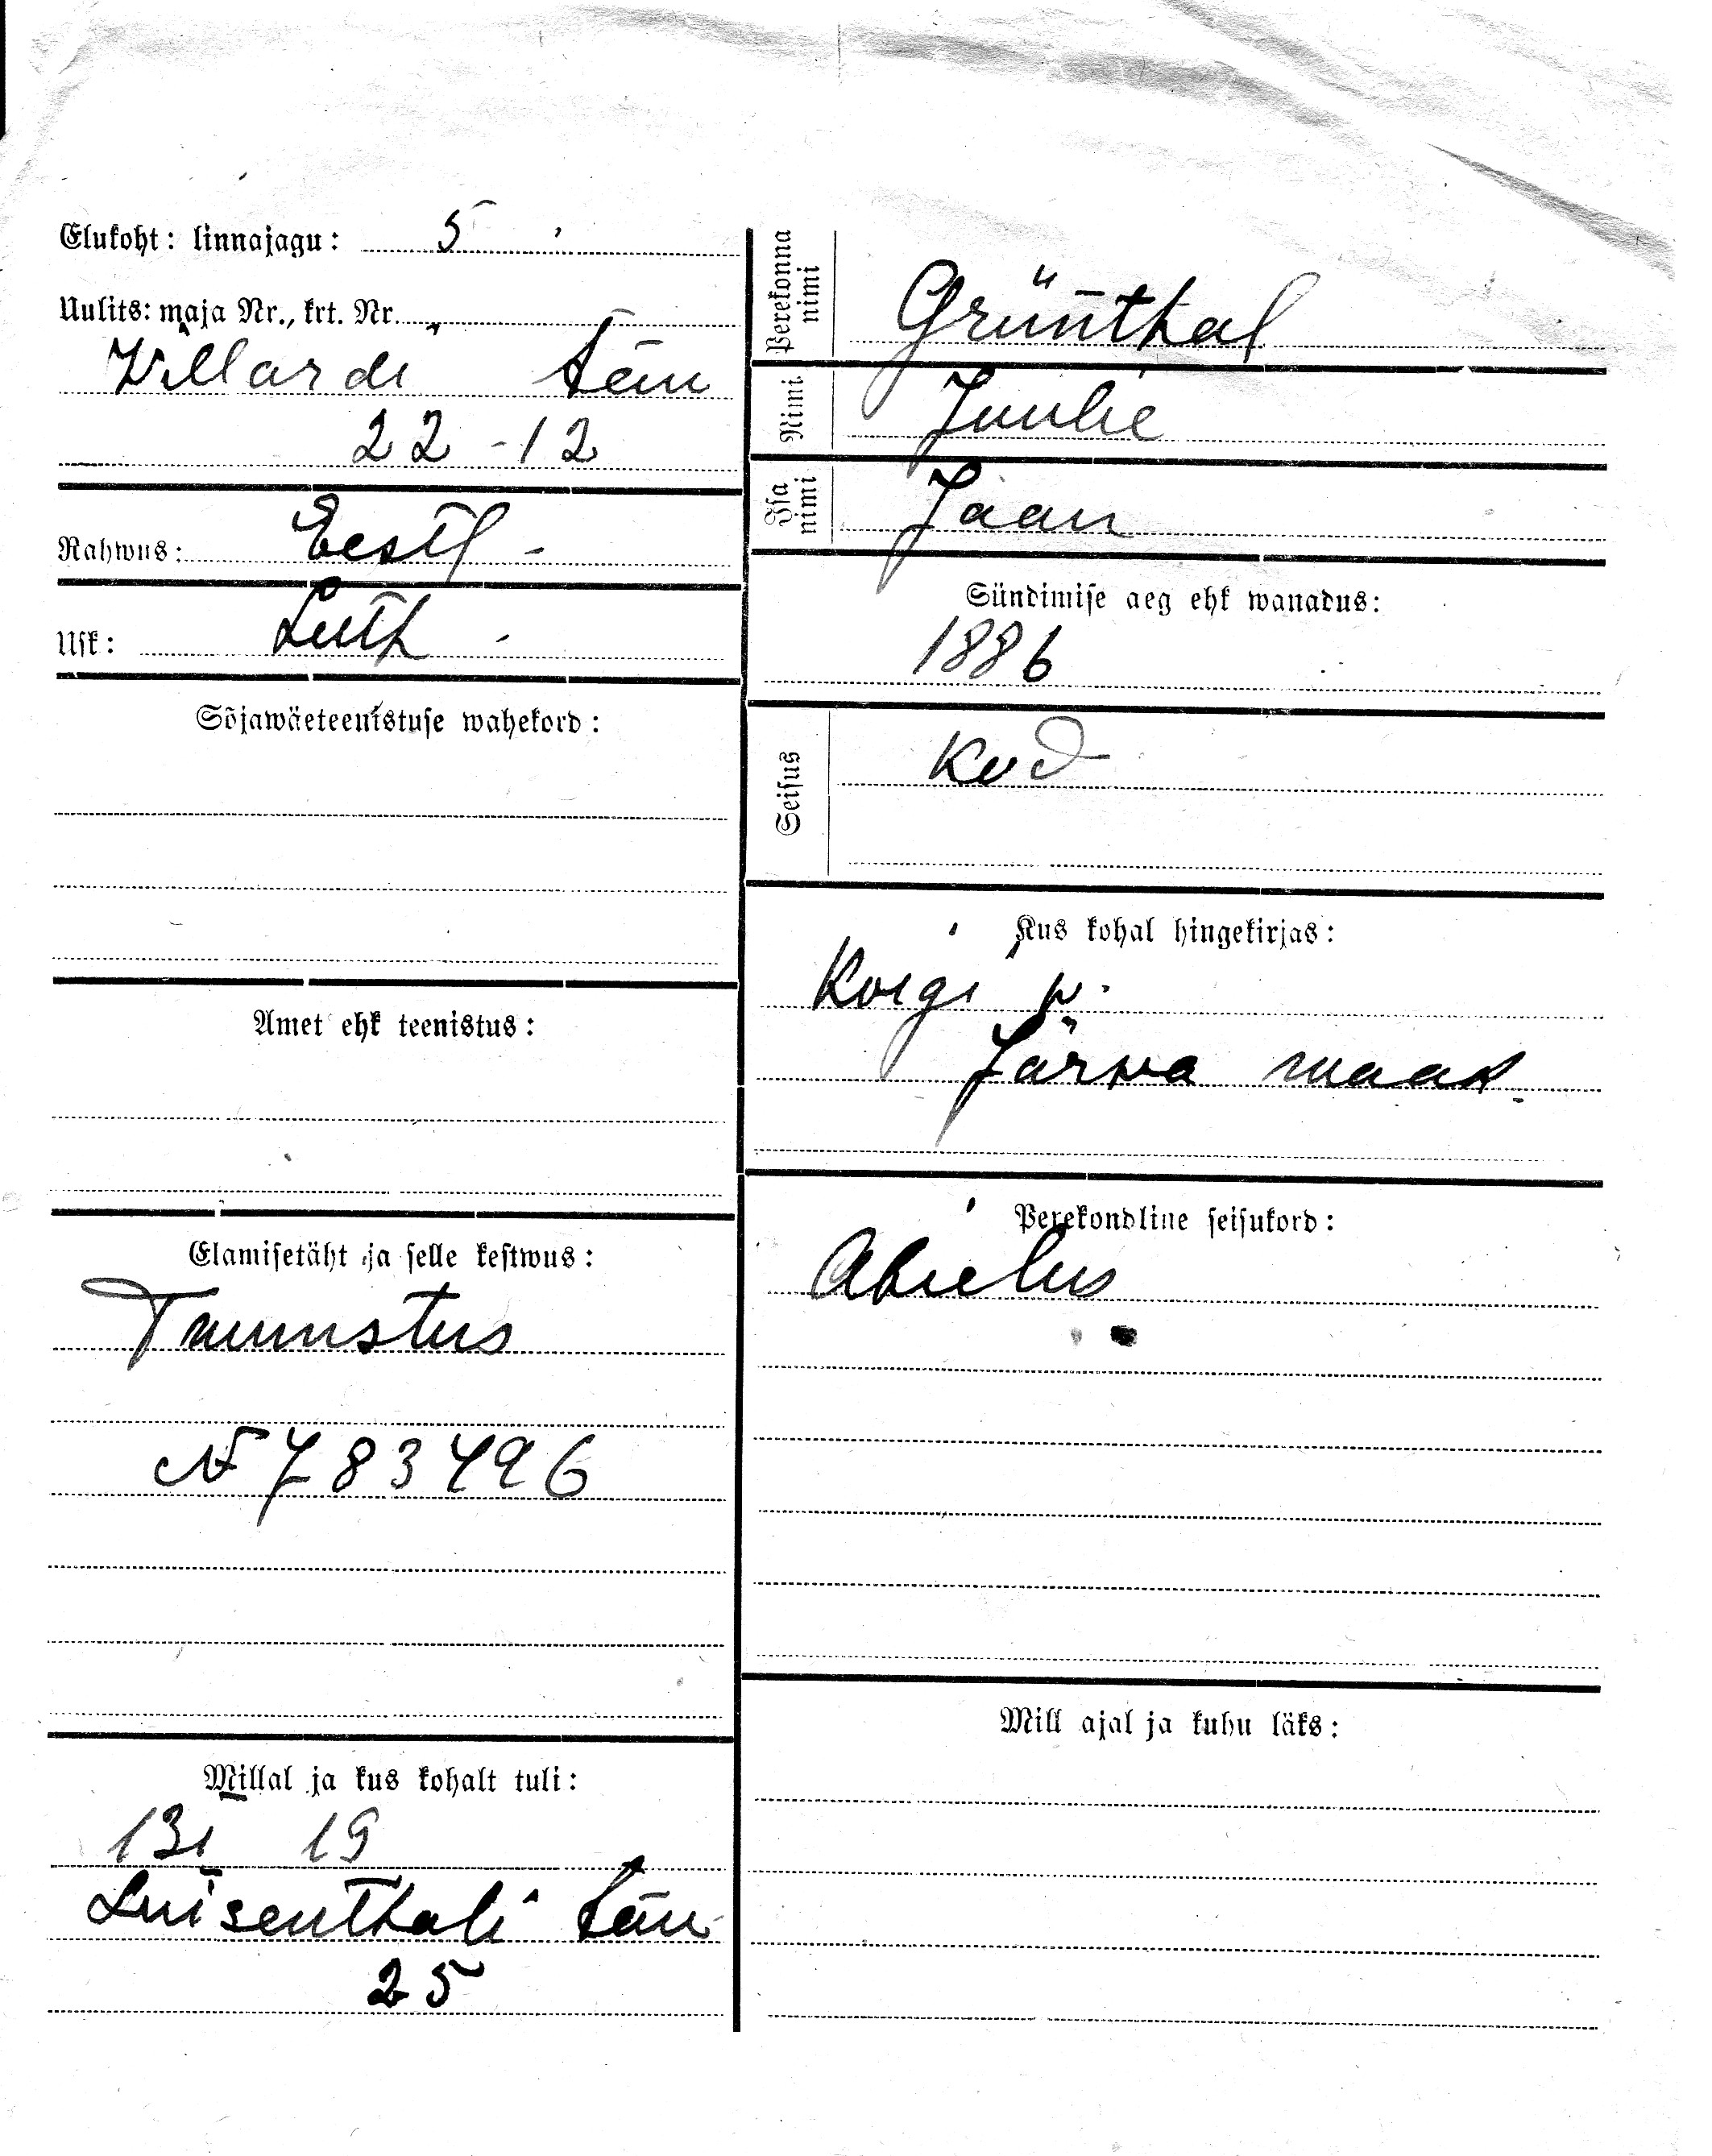 Elukoht: linnajagu: 5
Uulits: maja Nr., krt. Nr.
Willardi tän
22-12
Rahwus: Eestl
Usk: Luth
Sõjawäeteenistuse wahekord:
Amet ehk teenistus:
Elamisetäht ja selle kestwus:
Tunnistus
N 783496
Millal ja kus kohalt tuli:
13 19
Luisenthali tän
25
Perekonna nimi Grünthal
Nimi Juulie
Isa nimi Jaan
Sündimise aeg ehk wanadus:
1886
Seisus Kod
Kus kohal hingekirjas:
Koigi w.
Järwa maak.
Perekondline seisukord:
Abielus
Mill ajal ja kuhu läks: